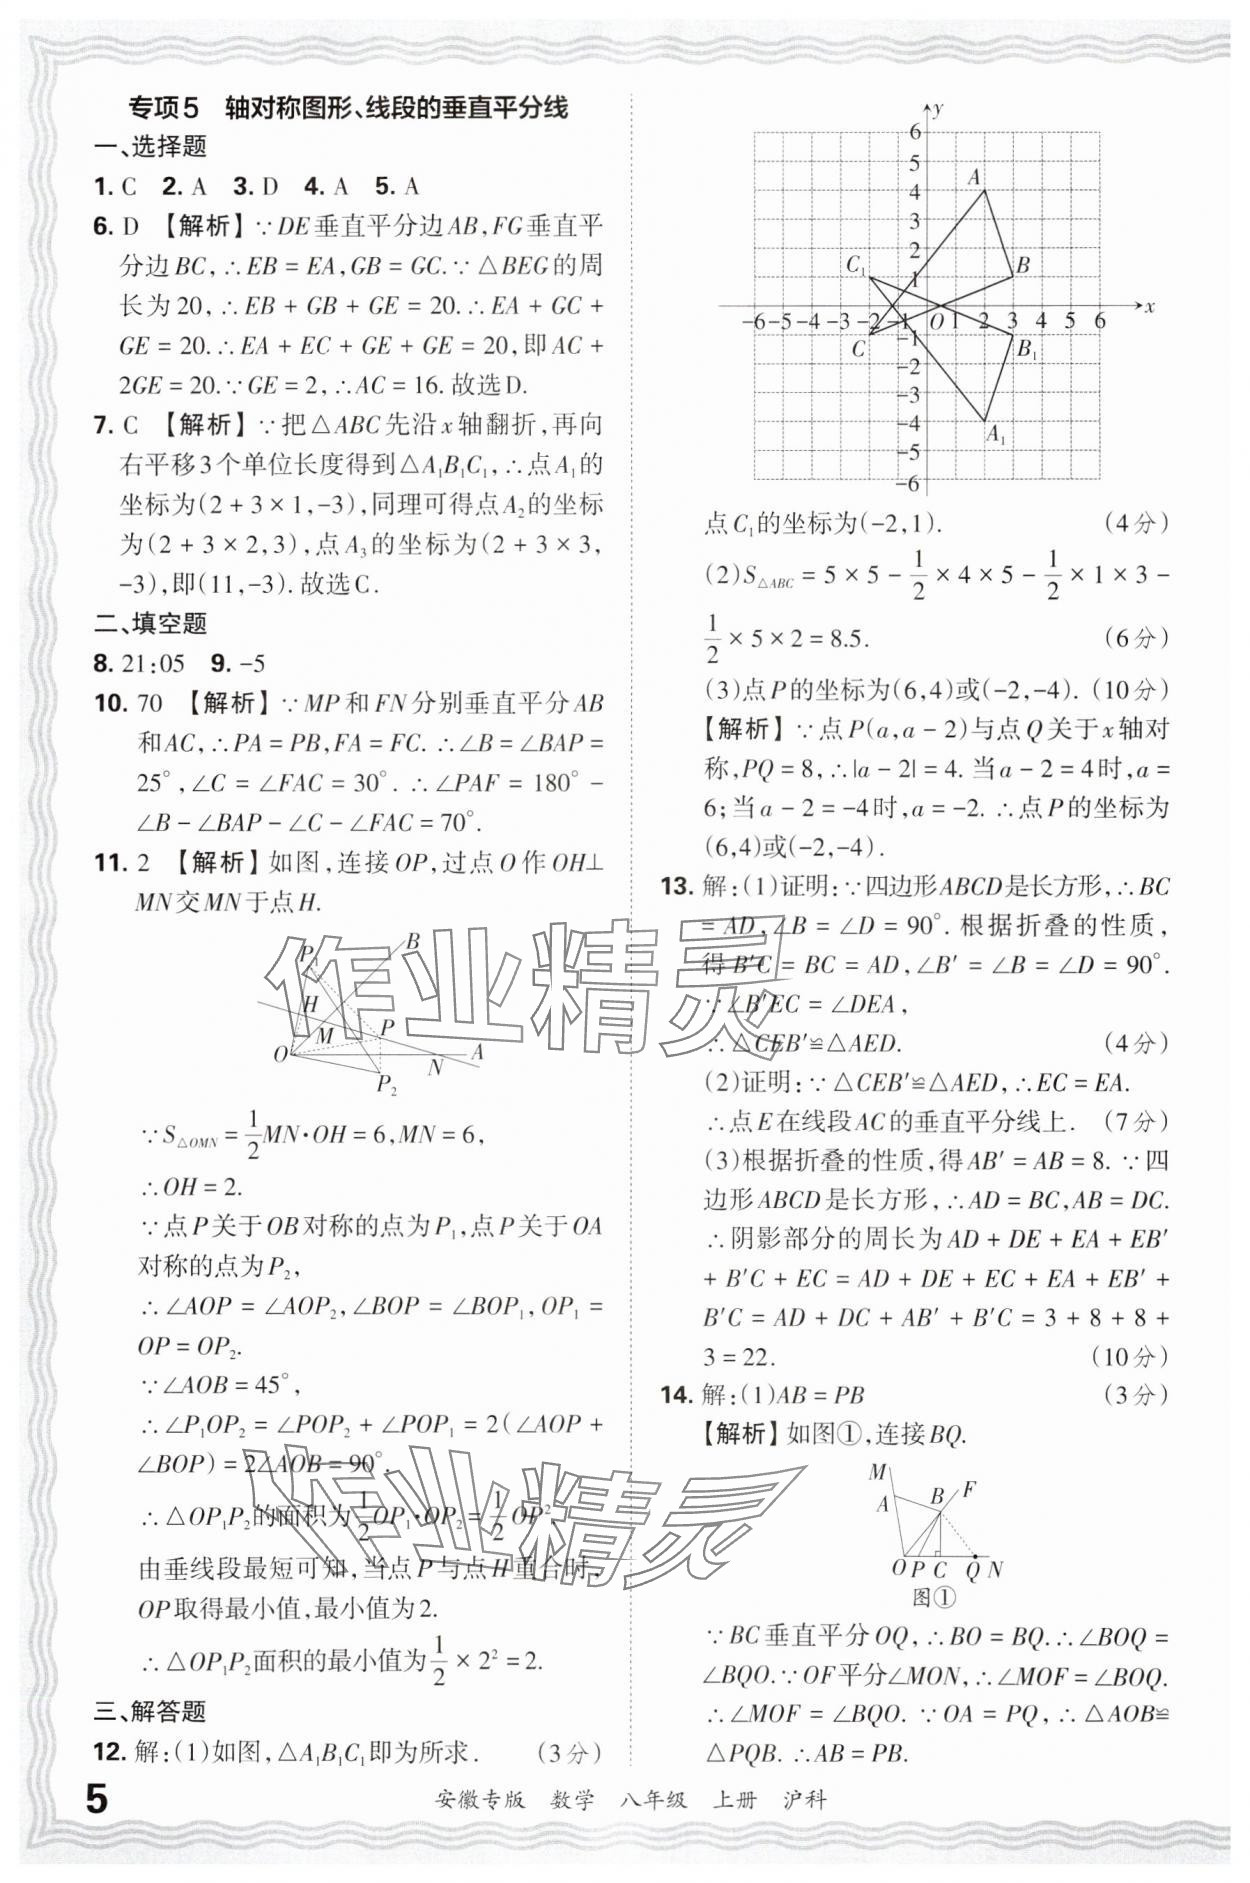 专项5 轴对称图形、线段的垂直平分线
一、选择题
1. C 2. A 3. D 4. A 5. A
6. D 【解析】∵DE垂直平分边AB,FG垂直平
分边BC,∴EB=EA,GB=GC.∵△BEG的周
长为20,∴EB+GB+GE=20.∴EA+GC+
GE=20.∴EA+EC+GE+GE=20,即AC+
2GE=20.∵GE=2,∴AC=16.故选D.
7. C 【解析】∵把△ABC先沿x轴翻折,再向
右平移3个单位长度得到△A₁B₁C₁,∴点A₁的
坐标为(2+3×1,-3),同理可得点A₂的坐标
为(2+3×2,3),点A₃的坐标为(2+3×3,
-3),即(11,-3).故选C.
二、填空题
8. 21:05 9. -5
10. 70 【解析】∵MP和FN分别垂直平分AB
和AC,∴PA=PB,FA=FC.∴∠B=∠BAP=
25°,∠C=∠FAC=30°.∴∠PAF=180°-
∠B-∠BAP-∠C-∠FAC=70°.
11. 2 【解析】如图,连接OP,过点O作OH⊥
MN交MN于点H.
P₁ B
H
M P
O N A
P₂
∵S△OMN=1/2MN·OH=6,MN=6,
∴OH=2.
∵点P关于OB对称的点为P₁,点P关于OA
对称的点为P₂,
∴∠AOP=∠AOP₂,∠BOP=∠BOP₁,OP₁=
OP=OP₂.
∵∠AOB=45°,
∴∠P₁OP₂=∠POP₂+∠POP₁=2(∠AOP+
∠BOP)=2∠AOB=90°.
∴△OP₁P₂的面积为1/2OP₁·OP₂=1/2OP².
由垂线段最短可知,当点P与点H重合时,
OP取得最小值,最小值为2.
∴△OP₁P₂面积的最小值为1/2×2²=2.
三、解答题
12. 解:(1)如图,△A₁B₁C₁即为所求. (3分)
y
6
5
4 A
3
2
C₁ 1 B
-6-5-4-3-2-1 O 1 2 3 4 5 6 x
C -1 B₁
-2
-3
-4 A₁
-5
-6
点C₁的坐标为(-2,1). (4分)
(2)S△ABC=5×5-1/2×4×5-1/2×1×3-
1/2×5×2=8.5. (6分)
(3)点P的坐标为(6,4)或(-2,-4). (10分)
【解析】∵点P(a,a-2)与点Q关于x轴对
称,PQ=8,∴|a-2|=4.当a-2=4时,a=
6;当a-2=-4时,a=-2.∴点P的坐标为
(6,4)或(-2,-4).
13. 解:(1)证明:∵四边形ABCD是长方形,∴BC
=AD,∠B=∠D=90°.根据折叠的性质,
得B′C=BC=AD,∠B′=∠B=∠D=90°.
∵∠B′EC=∠DEA,
∴△CEB′≌△AED. (4分)
(2)证明:∵△CEB′≌△AED,∴EC=EA.
∴点E在线段AC的垂直平分线上. (7分)
(3)根据折叠的性质,得AB′=AB=8.∵四
边形ABCD是长方形,∴AD=BC,AB=DC.
∴阴影部分的周长为AD+DE+EA+EB′
+B′C+EC=AD+DE+EC+EA+EB′+
B′C=AD+DC+AB′+B′C=3+8+8+
3=22. (10分)
14. 解:(1)AB=PB (3分)
【解析】如图①,连接BQ.
M
A B F
O P C Q N
图①
∵BC垂直平分OQ,∴BO=BQ.∴∠BOQ=
∠BQO.∵OF平分∠MON,∴∠MOF=∠BOQ.
∴∠MOF=∠BQO.∵OA=PQ,∴△AOB≌
△PQB.∴AB=PB.
作业精灵
作业精灵
5
安徽专版 数学 八年级 上册 沪科